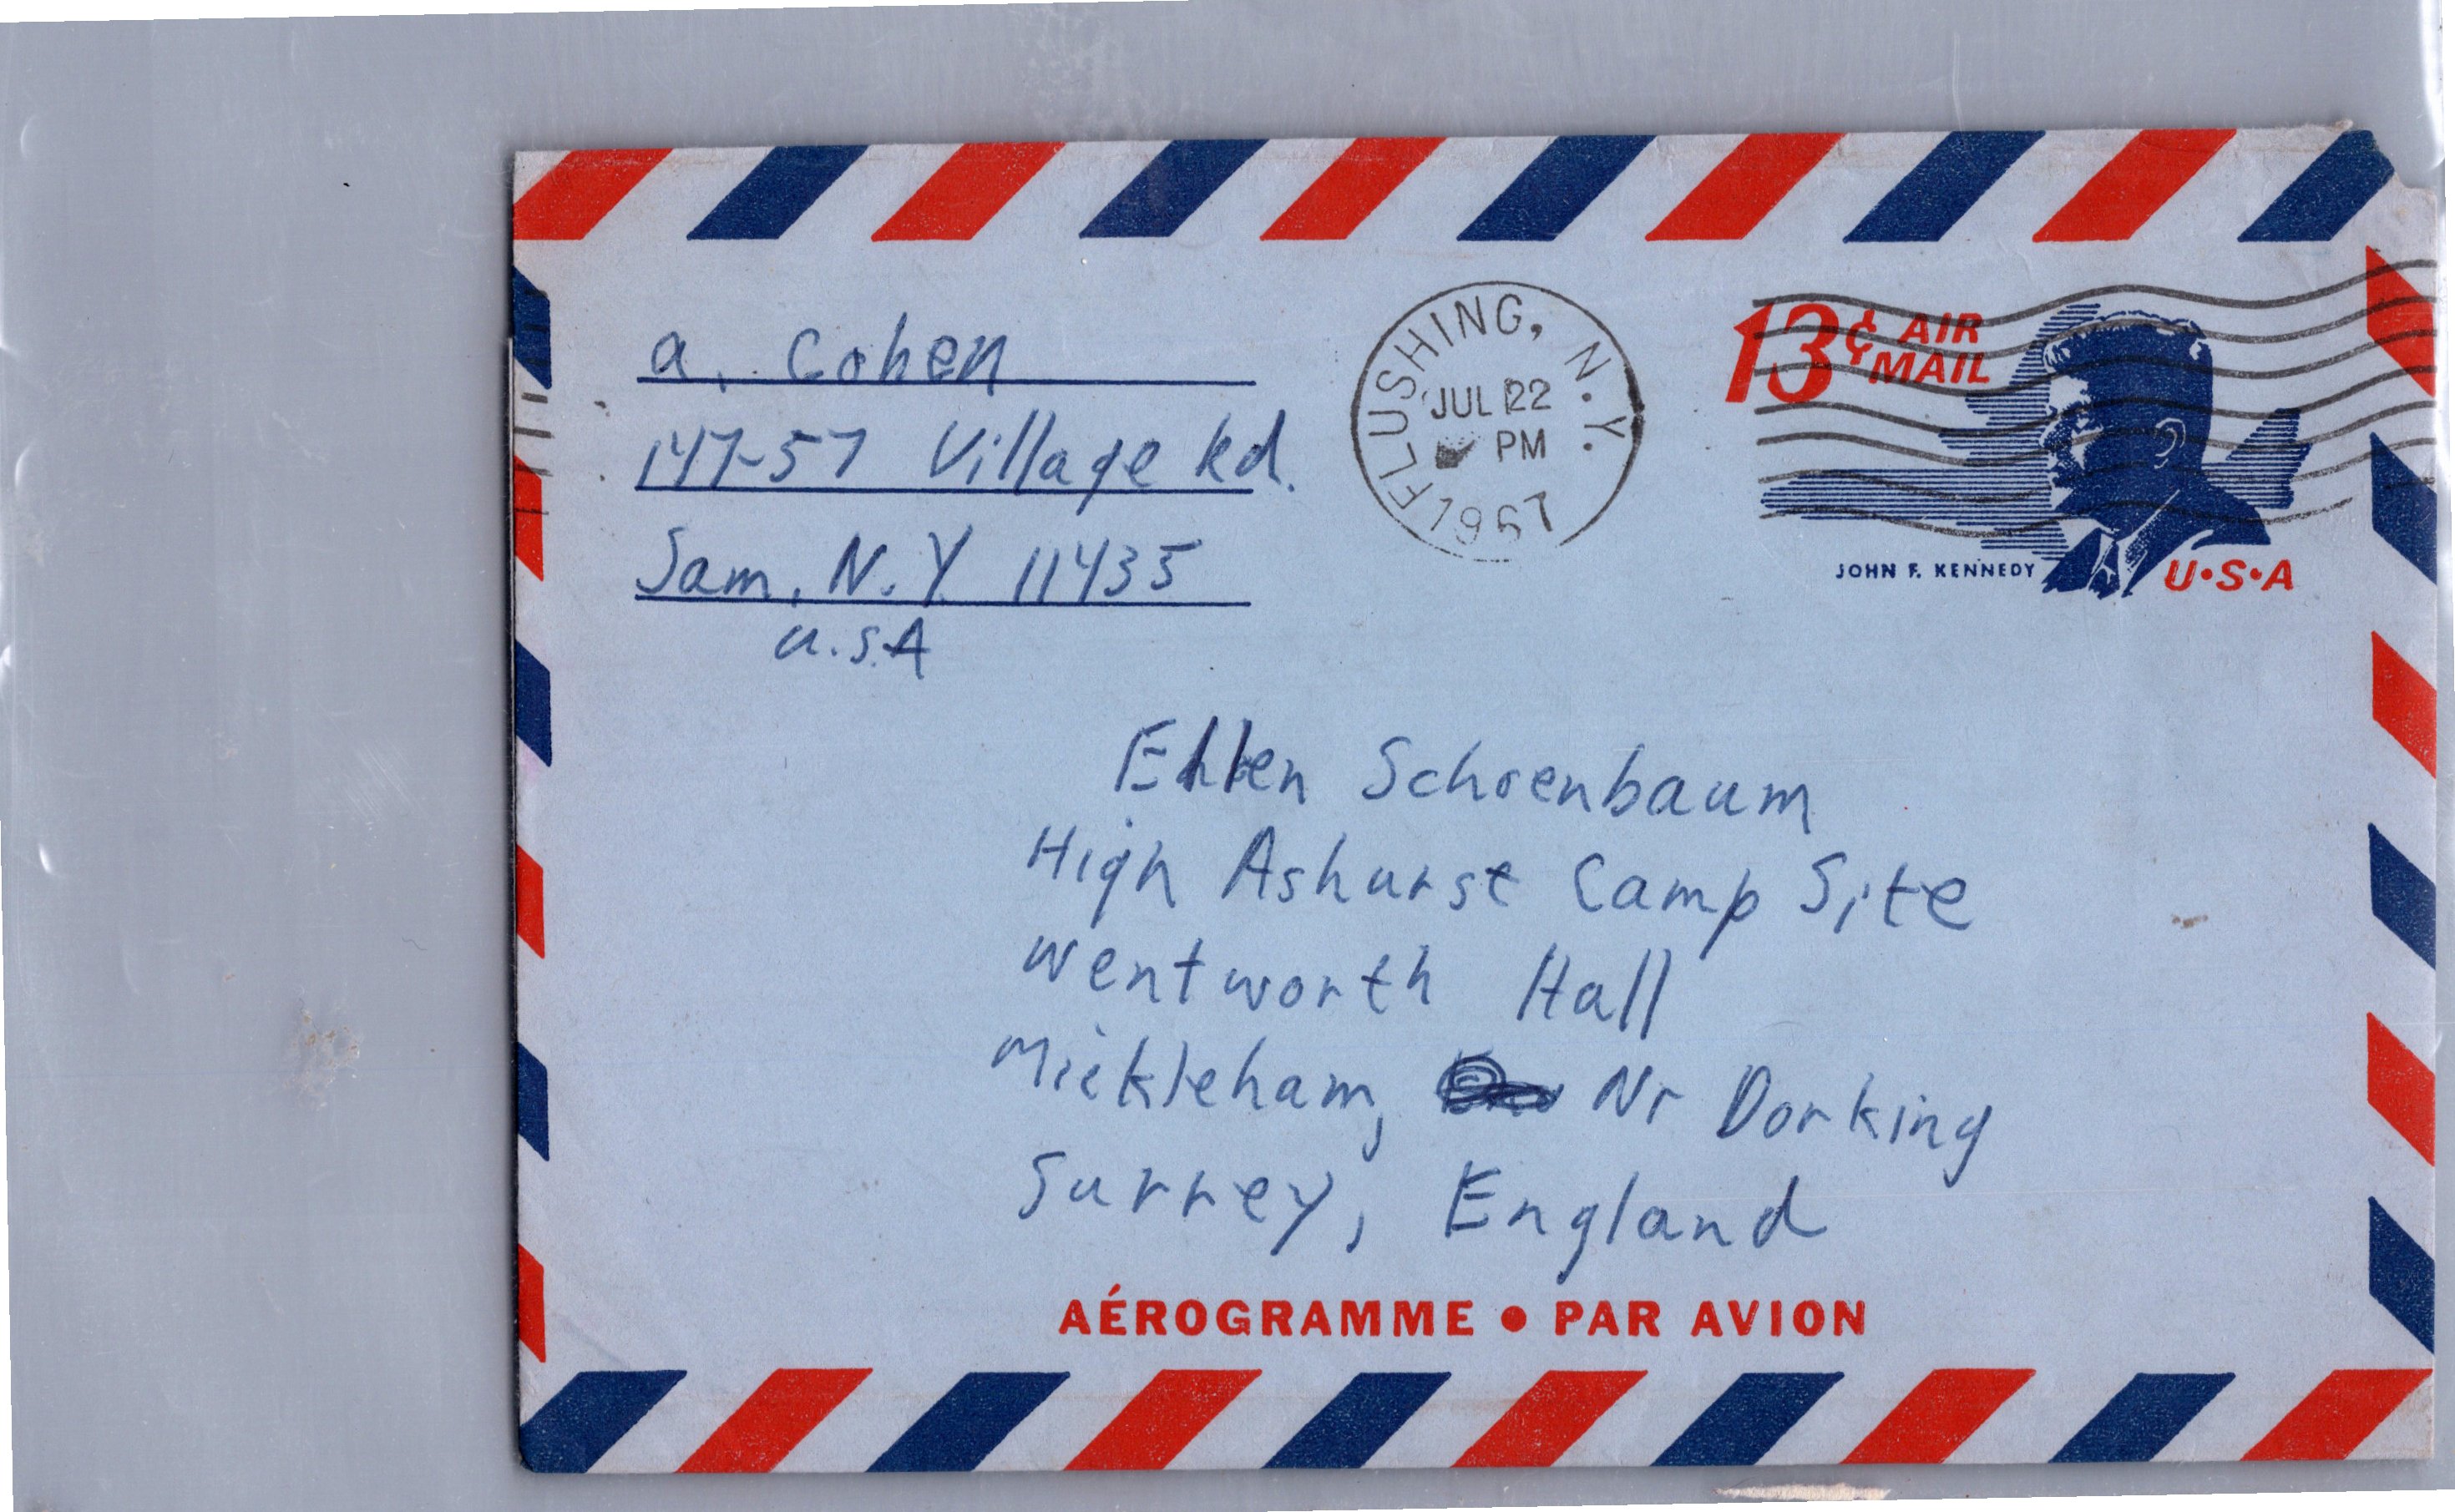 a. Cohen
147-57 Village Rd.
Jam, N.Y. 11435
U.S.A
FLUSHING, N.Y.
JUL 22
PM
1967
13¢ AIR
MAIL
JOHN F. KENNEDY
U•S•A
Ellen Schoenbaum
High Ashurst Camp Site
Wentworth Hall
Mickleham, Nr Dorking
Surrey, England
AÉROGRAMME • PAR AVION